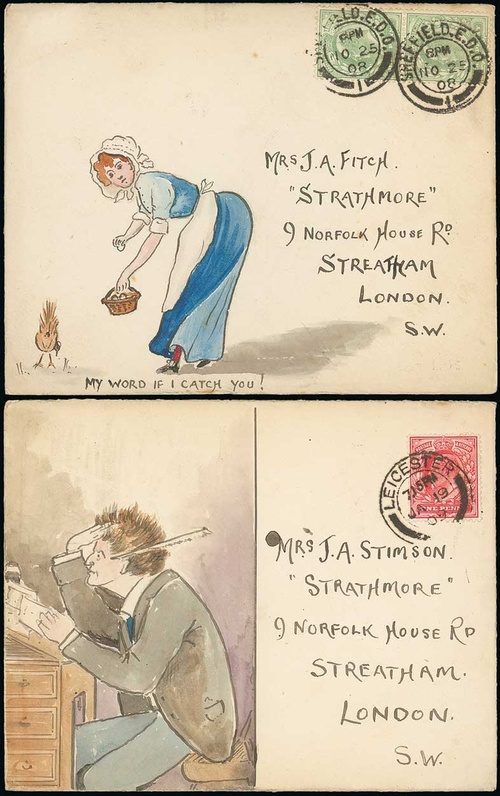 SHEFFIELD.E.D.O.
8PM
NO 25
08
1
SHEFFIELD.E.D.O.
8PM
NO 25
08
1
MRS J.A. FITCH.
"STRATHMORE"
9 NORFOLK HOUSE RD
STREATHAM
LONDON.
S.W.
MY WORD IF I CATCH YOU!
LEICESTER
7.15PM
JA 19
ONE PENNY
MRS J.A. STIMSON.
"STRATHMORE"
9 NORFOLK HOUSE RD
STREATHAM.
LONDON.
S.W.